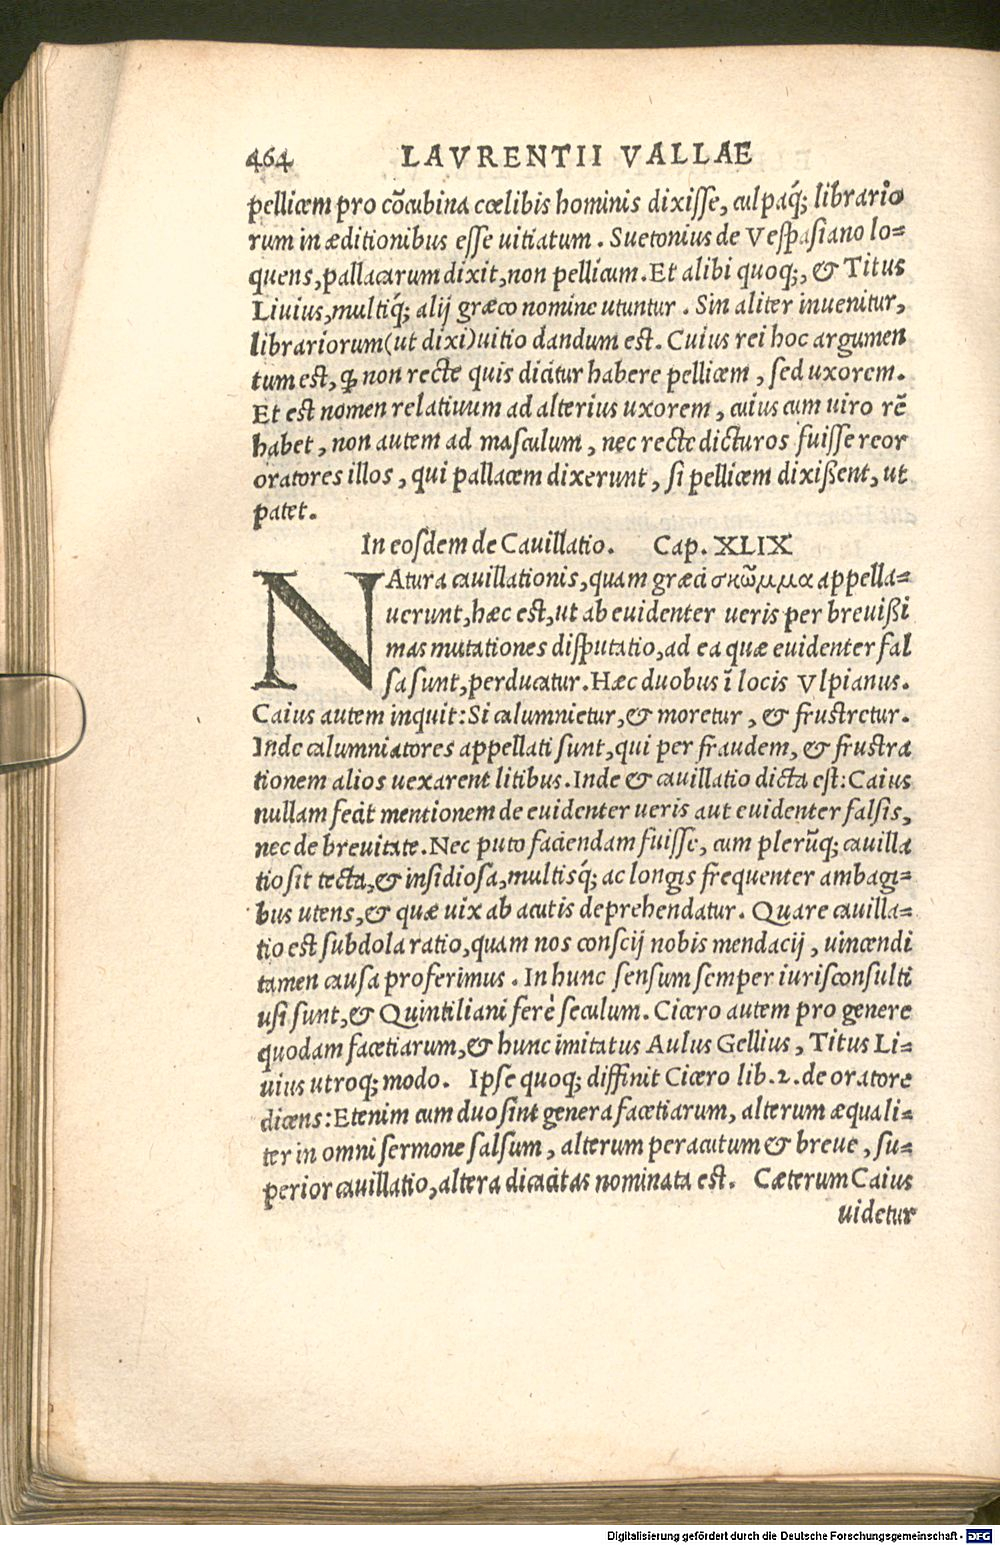 464 LAVRENTII VALLAE
pellicem pro cõcubina cœlibis hominis dixisse, culpaq́; librario
rum in æditionibus esse uitiatum. Suetonius de Vespasiano lo=
quens, pallacarum dixit, non pellicum. Et alibi quoq;, & Titus
Liuius, multiq́; alij græco nomine utuntur. Sin aliter inuenitur,
librariorum (ut dixi) uitio dandum est. Cuius rei hoc argumen
tum est, ꝙ non recte quis dicitur habere pellicem, sed uxorem.
Et est nomen relatiuum ad alterius uxorem, cuius cum uiro rẽ
habet, non autem ad masculum, nec recte dicturos fuisse reor
oratores illos, qui pallacem dixerunt, si pellicem dixißent, ut
patet.
In eosdem de Cauillatio. Cap. XLIX
NAtura cauillationis, quam græci σκῶμμα appella=
uerunt, hæc est, ut ab euidenter ueris per breuißi
mas mutationes disputatio, ad ea quæ euidenter fal
sa sunt, perducatur. Hæc duobus ĩ locis Vlpianus.
Caius autem inquit: Si calumnietur, & moretur, & frustretur.
Inde calumniatores appellati sunt, qui per fraudem, & frustra
tionem alios uexarent litibus. Inde & cauillatio dicta est: Caius
nullam fecit mentionem de euidenter ueris aut euidenter falsis,
nec de breuitate. Nec puto faciendam fuisse, cum plerũq; cauilla
tio sit tecta, & insidiosa, multisq́; ac longis frequenter ambagi=
bus utens, & quæ uix ab acutis deprehendatur. Quare cauilla=
tio est subdola ratio, quam nos conscij nobis mendacij, uincendi
tamen causa proferimus. In hunc sensum semper iurisconsulti
usi sunt, & Quintiliani ferè seculum. Cicero autem pro genere
quodam facetiarum, & hunc imitatus Aulus Gellius, Titus Li=
uius utroq; modo. Ipse quoq; diffinit Cicero lib. 2. de oratore
dicens: Etenim cum duo sint genera facetiarum, alterum æquali=
ter in omni sermone salsum, alterum peracutum & breue, su=
perior cauillatio, altera dicacitas nominata est. Cæterum Caius
uidetur
Digitalisierung gefördert durch die Deutsche Forschungsgemeinschaft - DFG